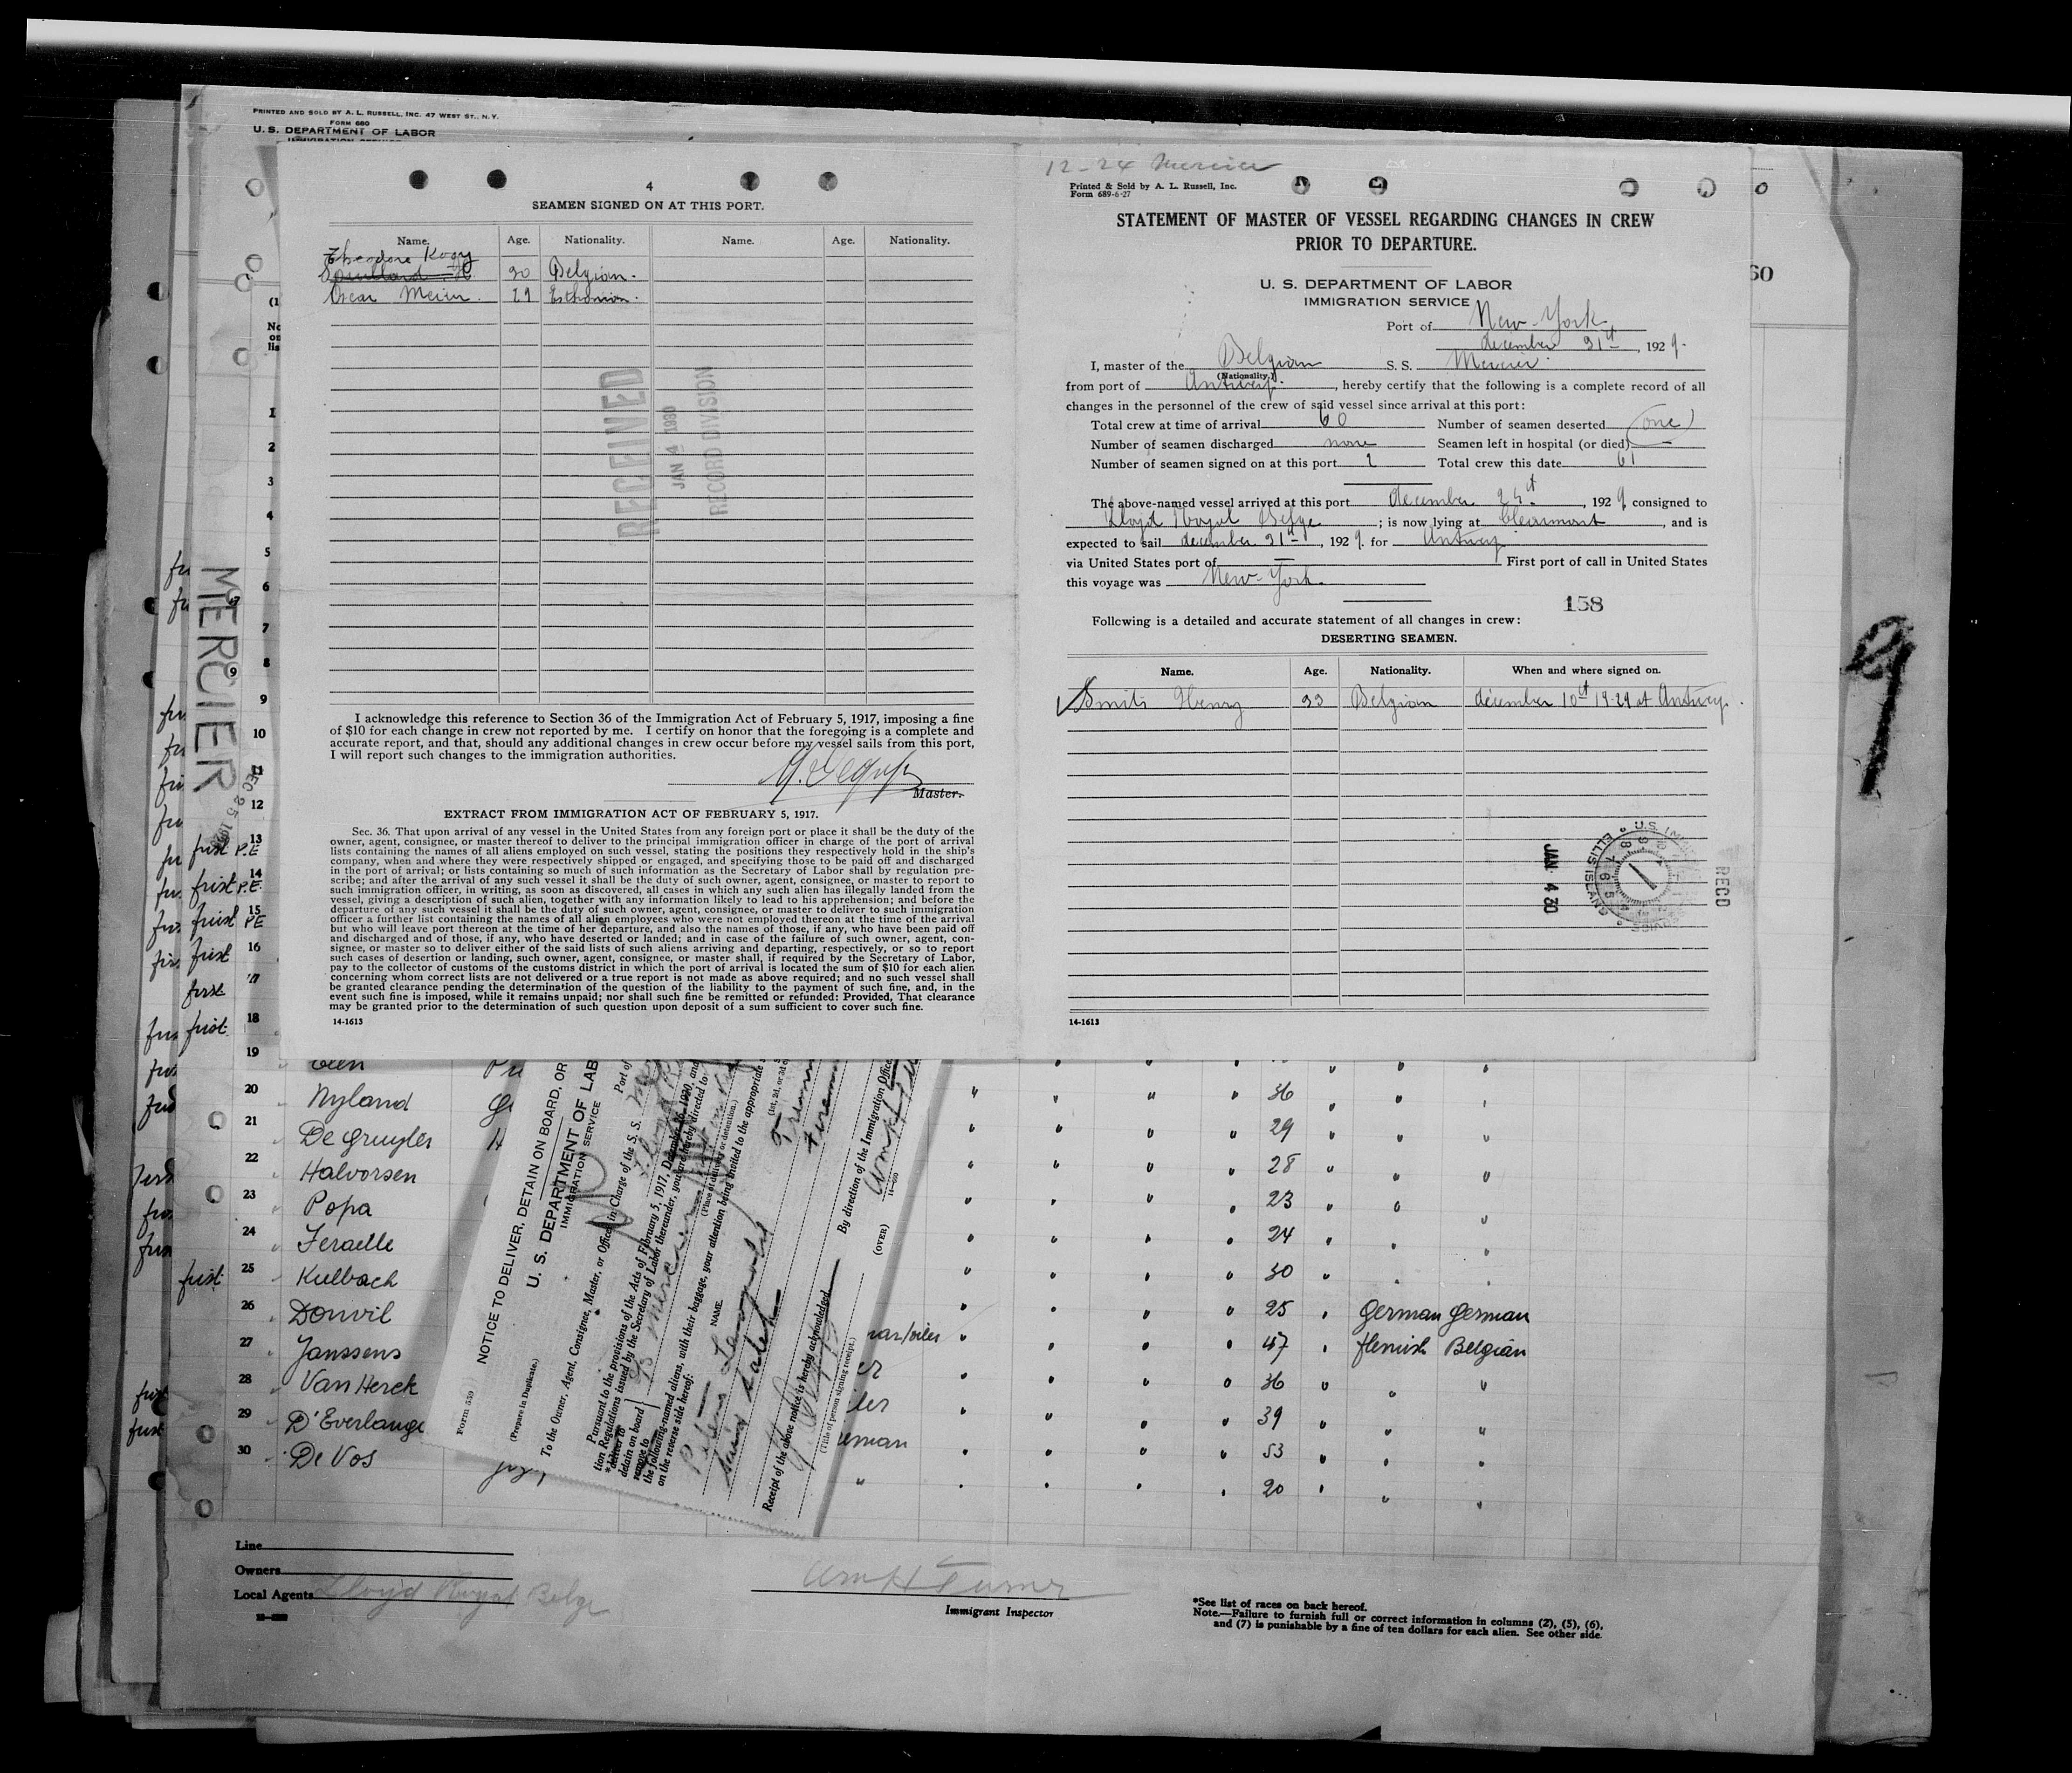 PRINTED AND SOLD BY A. L. RUSSELL, INC. 47 WEST ST., N. Y.
FORM 680
U. S. DEPARTMENT OF LABOR
4
SEAMEN SIGNED ON AT THIS PORT.
Name. Age. Nationality. Name. Age. Nationality.
Theodore Kooy
30 Belgian.
Oscar Meier. 29 Esthonian.
RECEIVED
JAN 4 1930
RECORD DIVISION
I acknowledge this reference to Section 36 of the Immigration Act of February 5, 1917, imposing a fine
of $10 for each change in crew not reported by me. I certify on honor that the foregoing is a complete and
accurate report, and that, should any additional changes in crew occur before my vessel sails from this port,
I will report such changes to the immigration authorities.
Master.
EXTRACT FROM IMMIGRATION ACT OF FEBRUARY 5, 1917.
Sec. 36. That upon arrival of any vessel in the United States from any foreign port or place it shall be the duty of the
owner, agent, consignee, or master thereof to deliver to the principal immigration officer in charge of the port of arrival
lists containing the names of all aliens employed on such vessel, stating the positions they respectively hold in the ship's
company, when and where they were respectively shipped or engaged, and specifying those to be paid off and discharged
in the port of arrival; or lists containing so much of such information as the Secretary of Labor shall by regulation pre-
scribe; and after the arrival of any such vessel it shall be the duty of such owner, agent, consignee, or master to report to
such immigration officer, in writing, as soon as discovered, all cases in which any such alien has illegally landed from the
vessel, giving a description of such alien, together with any information likely to lead to his apprehension; and before the
departure of any such vessel it shall be the duty of such owner, agent, consignee, or master to deliver to such immigration
officer a further list containing the names of all alien employees who were not employed thereon at the time of the arrival
but who will leave port thereon at the time of her departure, and also the names of those, if any, who have been paid off
and discharged and of those, if any, who have deserted or landed; and in case of the failure of such owner, agent, con-
signee, or master so to deliver either of the said lists of such aliens arriving and departing, respectively, or so to report
such cases of desertion or landing, such owner, agent, consignee, or master shall, if required by the Secretary of Labor,
pay to the collector of customs of the customs district in which the port of arrival is located the sum of $10 for each alien
concerning whom correct lists are not delivered or a true report is not made as above required; and no such vessel shall
be granted clearance pending the determination of the question of the liability to the payment of such fine, and, in the
event such fine is imposed, while it remains unpaid; nor shall such fine be remitted or refunded: Provided, That clearance
may be granted prior to the determination of such question upon deposit of a sum sufficient to cover such fine.
14-1613
12-24 Mercier
Printed & Sold by A. L. Russell, Inc.
Form 689-6-27
STATEMENT OF MASTER OF VESSEL REGARDING CHANGES IN CREW
PRIOR TO DEPARTURE.
U. S. DEPARTMENT OF LABOR
IMMIGRATION SERVICE
Port of New-York
december 31st, 1929.
I, master of the Belgian S. S. Mercier.
(Nationality.)
from port of Antwerp., hereby certify that the following is a complete record of all
changes in the personnel of the crew of said vessel since arrival at this port:
Total crew at time of arrival 60 Number of seamen deserted (one)
Number of seamen discharged none Seamen left in hospital (or died) —
Number of seamen signed on at this port 2 Total crew this date 61
The above-named vessel arrived at this port december 24st, 1929, consigned to
Lloyd Royal Belge; is now lying at Claremont, and is
expected to sail december 31st, 1929. for Antwerp
via United States port of — First port of call in United States
this voyage was New-York.
158
Following is a detailed and accurate statement of all changes in crew:
DESERTING SEAMEN.
Name. Age. Nationality. When and where signed on.
Smits Henry 33 Belgian december 10st 19-29 at Antwerp.
JAN 4 30
U.S. ELLIS ISLAND
RECD
14-1613
60
MERCIER
1
2
3
4
5
6
7
8
9
10
11
12
13
14
15
16
17
18
19
20 Nyland 36
21 De Gruyter 29
22 Halvorsen 28
23 Popa 23
24 24
25 Kulbach 30
26 Donvil 25 German German
27 Janssens 47 flemish Belgian
28 Van Herck 36
29 D'Everlange 39
30 De Vos 53
20
Form 539
NOTICE TO DELIVER, DETAIN ON BOARD, OR
(Prepare in Duplicate.)
U. S. DEPARTMENT OF LAB
IMMIGRATION SERVICE
Port of
To the Owner, Agent, Consignee, Master, or Officer in Charge of the S. S.
Pursuant to the provisions of the Acts of February 5, 1917, December 26, 1920, and
tion Regulations issued by the Secretary of Labor thereunder, you are hereby directed to:
*deliver to
detain on board
remove to
(Place of delivery or detention.)
the following-named aliens, with their baggage, your attention being invited to the appropriate
on the reverse side hereof:
NAME.
(1st, 2d, or 3d
By direction of the Immigration Office
Receipt of the above notice is hereby acknowledged
(Title of person signing receipt.)
(OVER)
Line
Owners
Local Agents Lloyd Royal Belge
Wm H Turner
Immigrant Inspector
*See list of races on back hereof.
Note.—Failure to furnish full or correct information in columns (2), (5), (6),
and (7) is punishable by a fine of ten dollars for each alien. See other side.